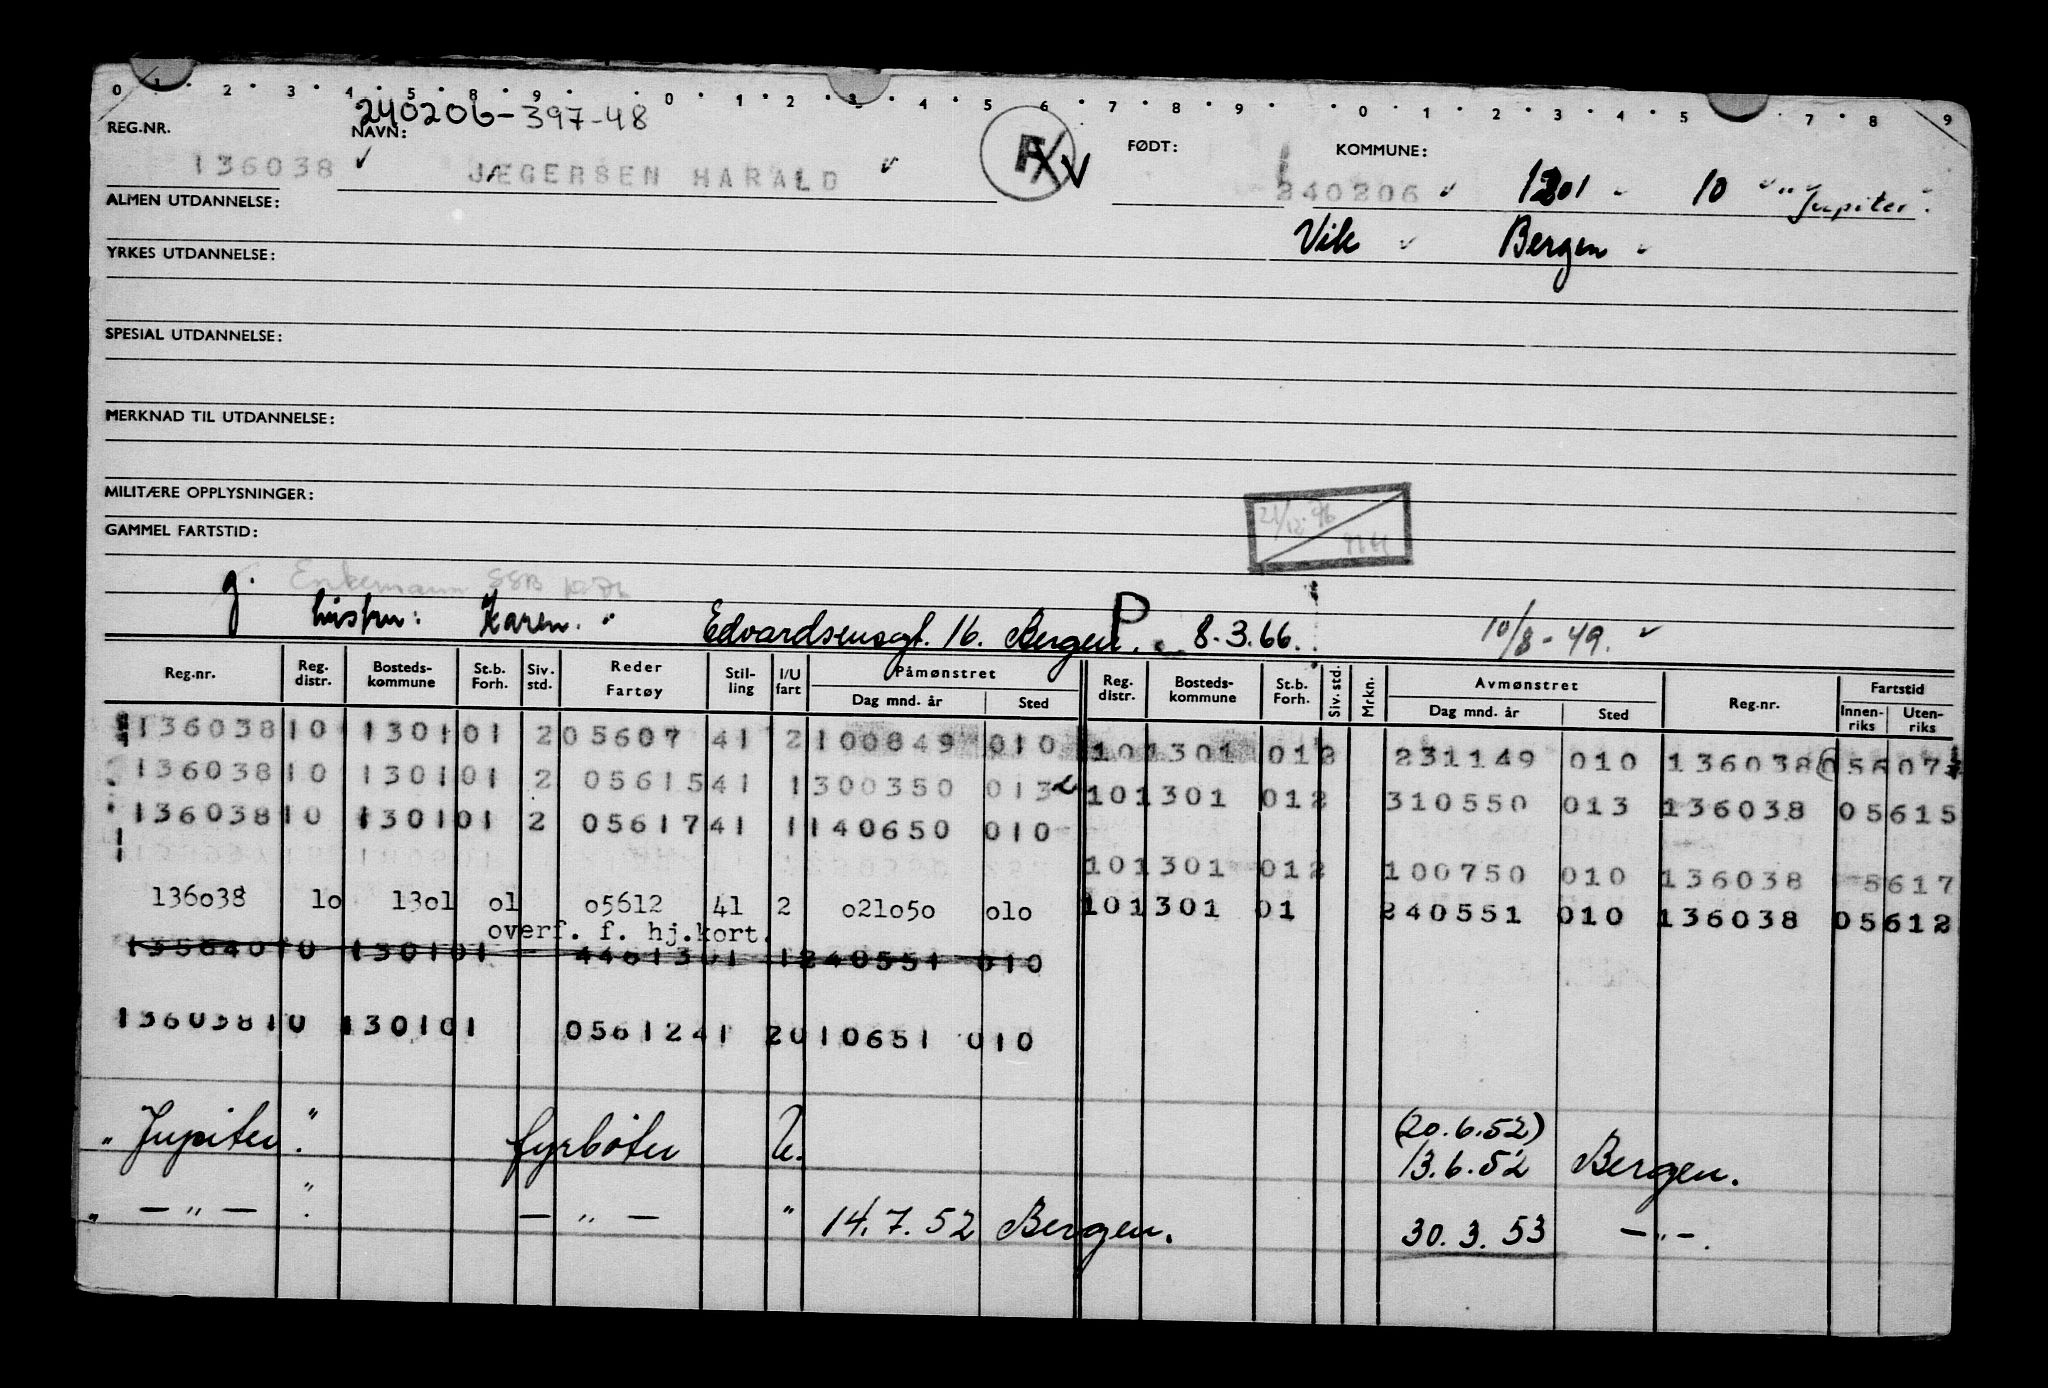 0 1 2 3 4 5 8 9 0 1 2 3 4 5 6 7 8 9 0 1 2 3 4 5 7 8 9
REG.NR. NAVN: 240206-397-48 FØDT: KOMMUNE:
136038 JÆGERSEN HARALD 240206 1301 10 "Jupiter"
ALMEN UTDANNELSE:
Vik Bergen
YRKES UTDANNELSE:
SPESIAL UTDANNELSE:
MERKNAD TIL UTDANNELSE:
MILITÆRE OPPLYSNINGER:
21/12-96
GAMMEL FARTSTID:
g. Enkemann SSB
hustru: Karen. Edvardsensgt. 16. Bergen. P 8.3.66. 10/8-49.
Reg.nr. Reg. distr. Bosteds-kommune St.b. Forh. Siv. std. Reder Fartøy Stil-ling I/U fart Påmønstret Dag mnd. år Sted Reg. distr. Bosteds-kommune St.b. Forh. Siv. std. Mrkn. Avmønstret Dag mnd. år Sted Reg.nr. Fartstid Innen-riks Uten-riks
136038 10 1301 01 2 05607 41 2 100849 010 10 1301 01 2 231149 010 136038 05607
136038 10 1301 01 2 05615 41 1 300350 013 10 1301 01 2 310550 013 136038 05615
136038 10 1301 01 2 05617 41 1 140650 010
10 1301 01 2 100750 010 136038 5617
136o38 1o 13o1 o1 o5612 41 2 o21o5o o1o 10 1301 01 240551 010 136038 05612
overf. f. hj.kort.
135640 10 1301 01 - 44613 01 1 240551 010
136038 10 1301 01 05612 41 2 010651 010
"Jupiter". fyrbøter U. (20.6.52)
13.6.52 Bergen.
" — " — ". — " — " 14.7.52 Bergen. 30.3.53 — " —.